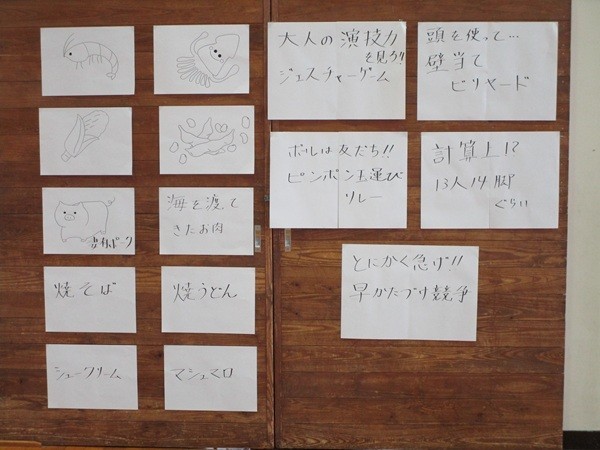 海を渡って
きたお肉
焼そば
焼うどん
シュークリーム
マシュマロ
大人の演技力
を見ろ!!
ジェスチャーゲーム
頭を使って…
壁当て
ビリヤード
ボールは友だち!!
ピンポン玉運び
リレー
計算上は
13人14脚
ぐらい
とにかく急げ!!
早かたづけ競争